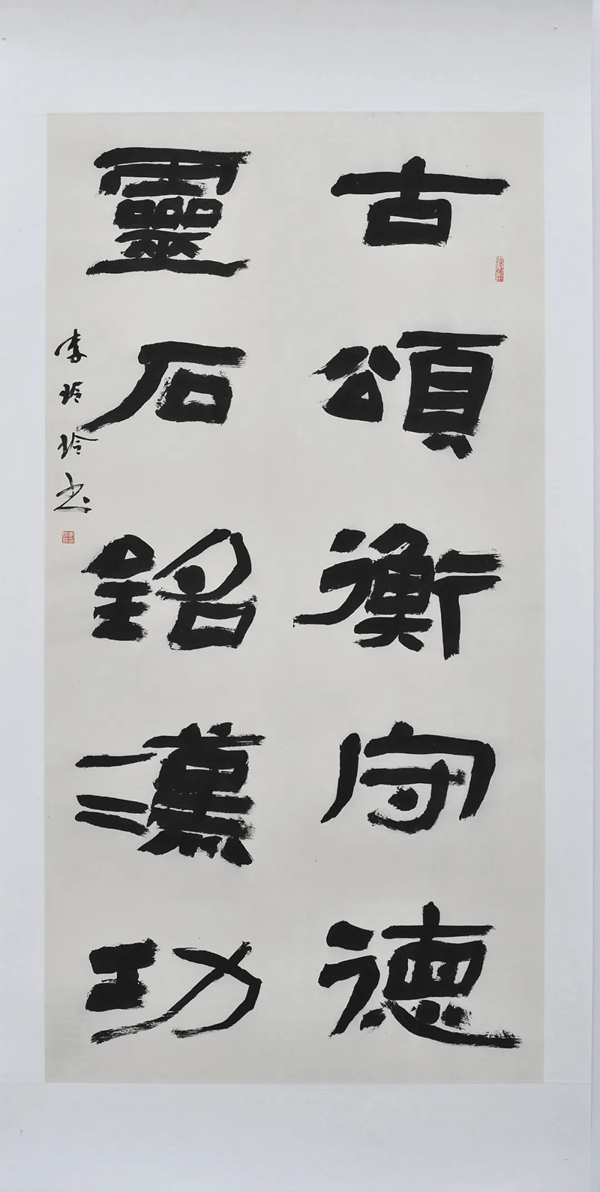 古頌衡守德
靈石銘漢功
李玲玲书